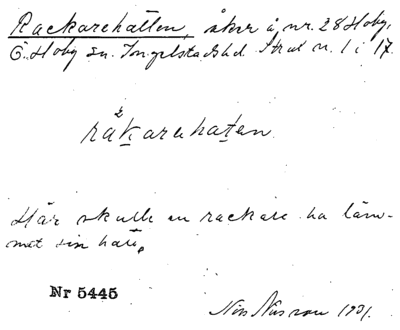 Rackarehatten, åker å nr. 28 Hoby,
Ö. Hoby sn. Ingelstads hd Strat n. 1 i 17.
rakarehaten
Här skulle en rackare ha läm-
nat sin hatt.
Nr 5445
Nils 1931.